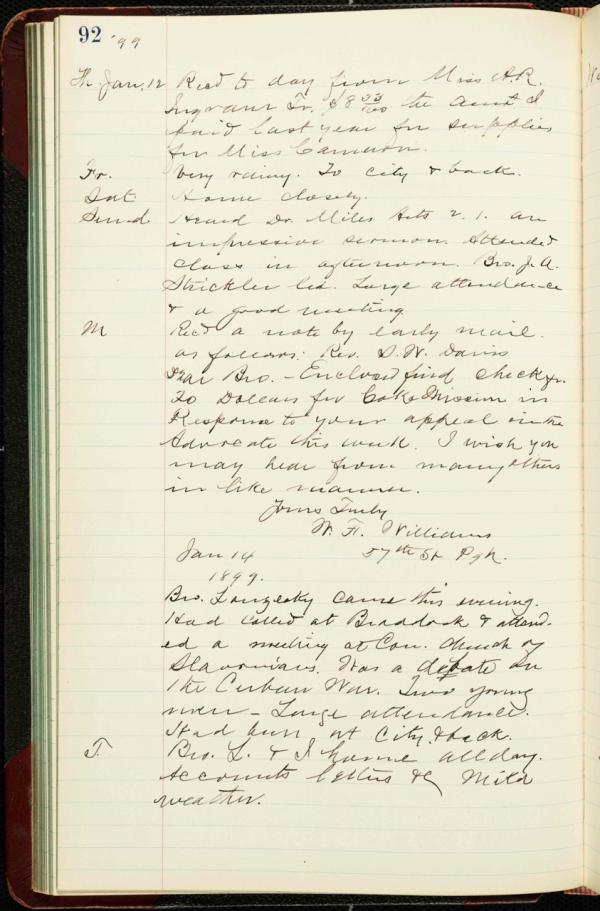 92 '99
Th. Jan. 12 Recd to day from Miss A.R.
Ingram Tr. $8 33/100 the amt I
paid last year for supplies
for Miss Cameron.
Fr. Very rainy. To city & back.
Sat Home closely.
Sund. Heard Dr. Miles Acts 2. 1. an
impressive sermon. Attended
class in afternoon. Bro. J. A.
Strickler led. Large attendance
& a good meeting
M Recd a note by early mail.
as follows: Rev. D. W. Davis
Dear Bro. - Enclosed find check for
20 Dollars for Coke Mission in
Response to your appeal in the
Advocate this week. I wish you
may hear from many others
in like manner.
Yours Truly
W. H. Williams
Jan 14 57th St Pgh.
1899.
Bro. came this evening.
Had called at Braddock & attend-
ed a meeting at Con. Church of
Slavonians. Was a debate on
the Cuban War. Two young
men - Large attendance.
Had been at City & back.
T. Bro. L. & I home all day.
Accounts letters &c Mild
weather.